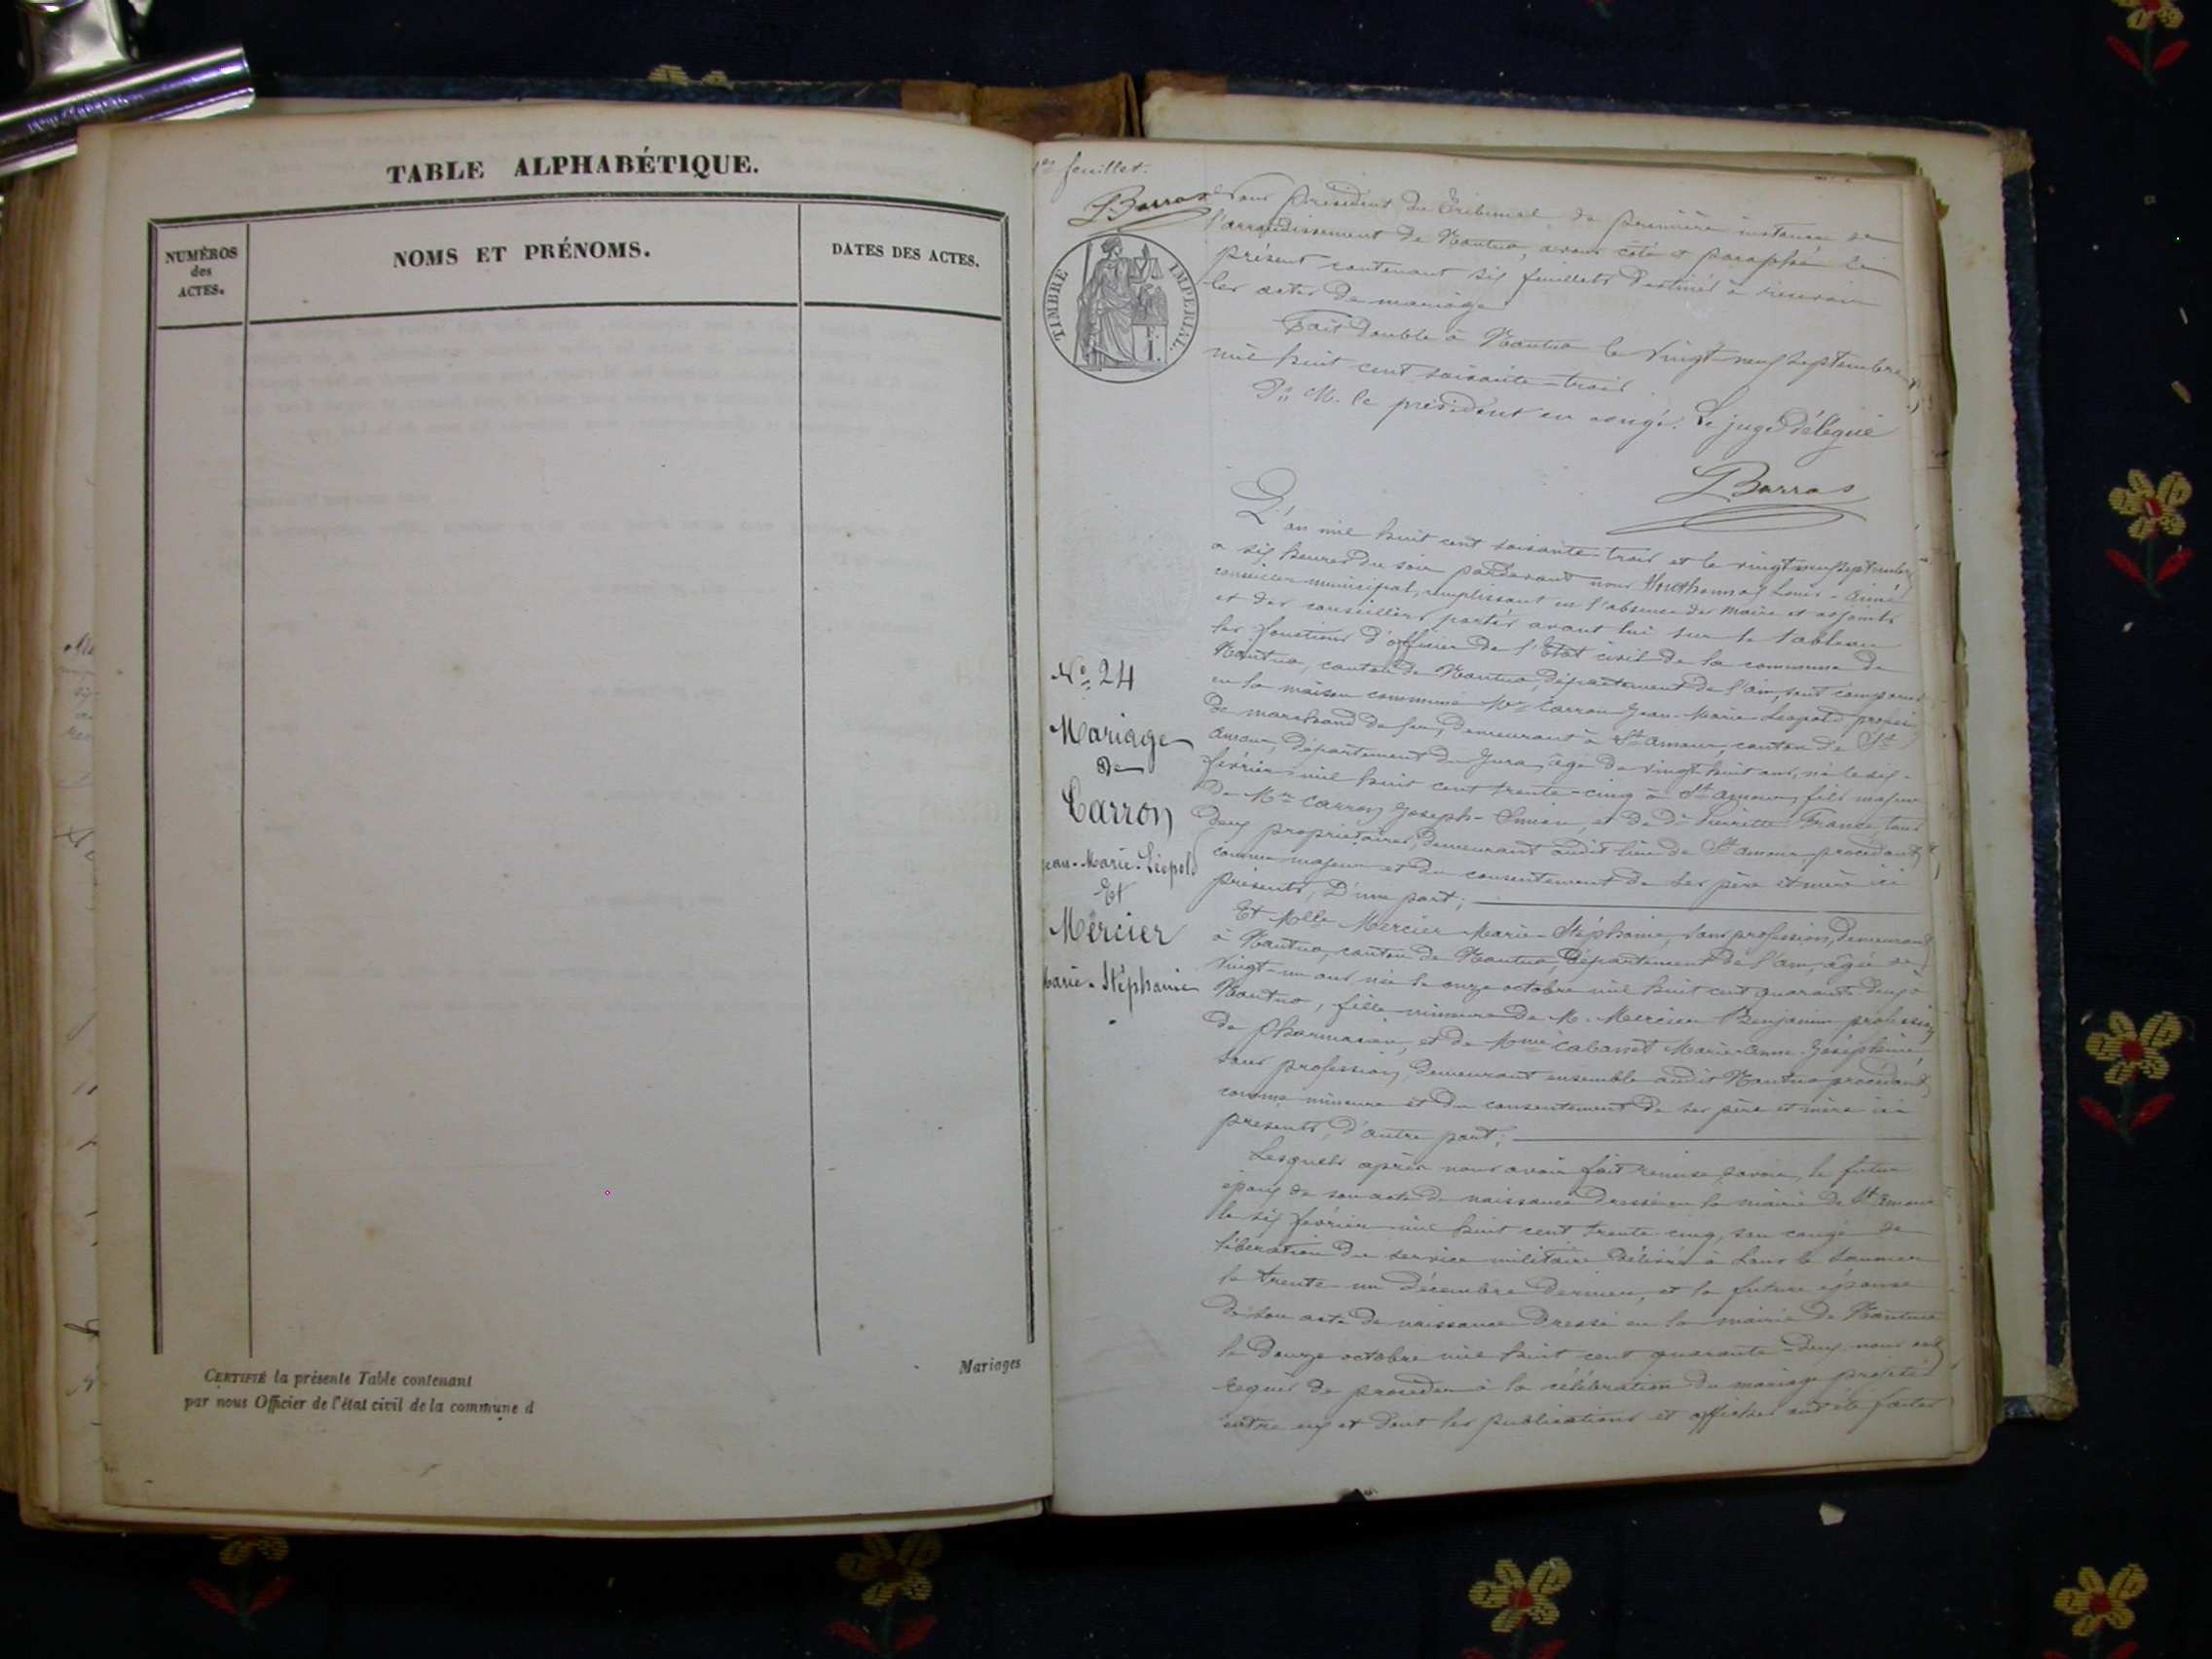 TABLE ALPHABÉTIQUE.
NUMÉROS
des
ACTES.
NOMS ET PRÉNOMS.
DATES DES ACTES.
CERTIFIÉ la présente Table contenant
par nous Officier de l'état civil de la commune d
Mariages
1er feuillet.
Barras
Nous Président du Tribunal de première instance de
l'arrondissement de Nantua, avons côté et paraphé le
présent contenant six feuillets destinés à recevoir
les actes de mariage
Fait double à Nantua le vingt-neuf septembre
mil huit cent soixante-trois.
Pr M. le président en congé. Le juge Délégué
Barras
TIMBRE IMPÉRIAL.
L'an mil huit cent soixante-trois et le vingt neuf septembre
à six heures du soir pardevant nous Louis-Aimé
conseiller municipal, remplissant en l'absence des maire et adjoints
et des conseillers portés avant lui sur le tableau
les fonctions d'officier de l'État civil de la commune de
Nantua, canton de Nantua, département de l'ain, sont comparus
en la maison commune Mr Carron Jean-Marie-Léopold profession
de marchand de fer, demeurant à St amour, canton de St
amour, département du Jura, âgé de vingt huit ans, né le six
février mil huit cent trente-cinq à St amour, fils majeur
de Mr Carron Joseph- et de De Pierrette France, tous
deux propriétaires, demeurant audit lieu de St amour, procédant
comme majeur et du consentement de ses père et mère ici
présents, D'une part;
Et Melle Mercier Marie-Stéphanie, sans profession, demeurant
à Nantua, canton de Nantua, Département de l'ain, âgée de
vingt-un ans née le onze octobre mil huit cent quarante deux à
Nantua, fille mineure de M. Mercier Benjamin profession
de pharmacien, et de Mme Marie-anne-Joséphine,
sans profession, demeurant ensemble audit Nantua procédant
comme mineure et du consentement de ses père et mère ici
présents, d'autre part;
Lesquels après nous avoir fait remise savoir, le futur
époux de son acte de naissance dressé en la mairie de St amour
le six février mil huit cent trente-cinq, son congé de
libération du service militaire délivré à Lons le Saunier
le trente un Décembre dernier, et la future épouse
de son acte de naissance dressé en la mairie de Nantua
le douze octobre mil huit cent quarante-deux, nous ont
requis de procéder à la célébration du mariage projeté
entre eux et dont les publications et affiches ont été faites
No 24
Mariage
De
Carron
Jean-Marie-Léopold
Et
Mercier
Marie-Stéphanie